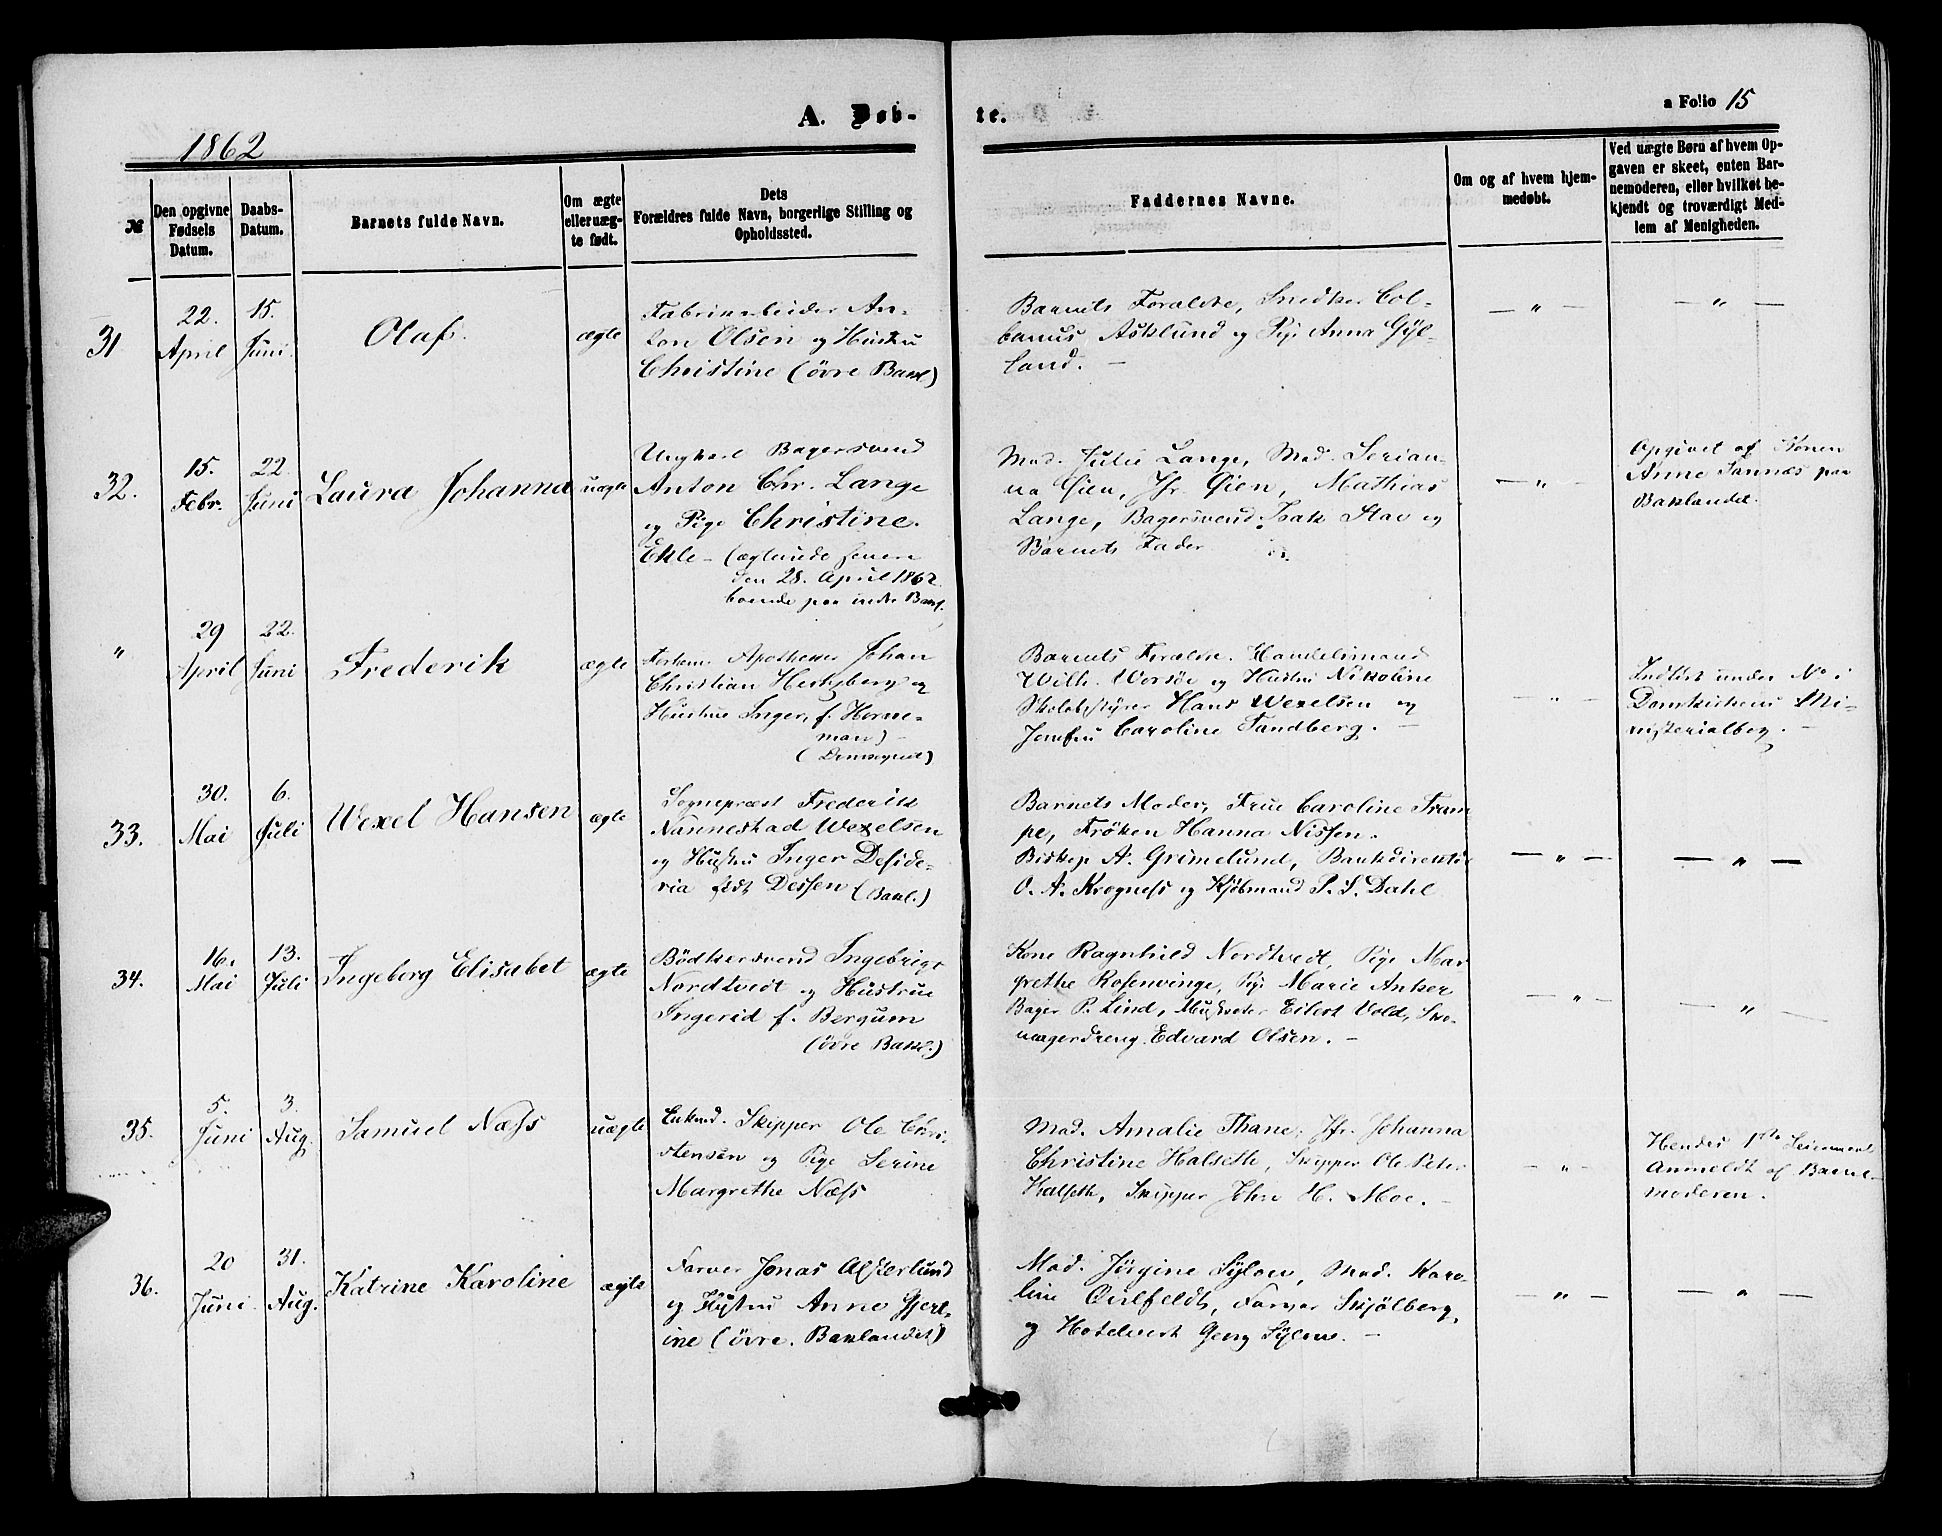 1862
A. Døb-
te.
a Folio 15
№
Den opgivne Fødsels Datum.
Daabs-Datum.
Barnets fulde Navn.
Om ægte eller uæg-te født.
Dets Forældres fulde Navn, borgerlige Stilling og Opholdssted.
Faddernes Navne.
Om og af hvem hjem-medøbt.
Ved uægte Børn af hvem Op-gaven er skeet, enten Bar-nemoderen, eller hvilket be-kjendt og troværdigt Med-lem af Menigheden.
31
22. April
15. Juni
Olaf.
ægte
Fabrikarbeider An-
ton Olsen og Hustru
Christine (øvre Bakl)
Barnets Forældre, Snedker Col-
banus Asklund og Pige Anna Gyl-
land. —
— " —
— " —
32.
15. Febr.
22. Juni
Laura Johanna
uægte
Ungkarl Bagersvend
Anton Chr. Lange
og Pige Christine
Ekle — (ægteviede senere
den 28. April 1862
boende paa indre Bakl.
Mad. Julie Lange, Mad. Serian-
na Øien, Jfr Øien, Mathias
Lange, Bagersvend Isak Stav og
Barnets Fader
— " —
Opgivet af Konen
Anne Sannæs paa
Baklandet.
"
29 April
22. Juni
Frederik
ægte
Apotheker Johan
Christian Hertzberg og
Hustru Inger, f. Horne-
man) —
(Domsognet)
Barnets Forældre. Handelsmand
Wilh. Worsøe og Hustru Nikoline
Skolebestyrer Hans Wexelsen og
Jomfru Caroline Sandberg. —
— " —
Indført under No i
Domkirkens Mi-
nisterialbog. —
33.
30. Mai
6. Juli
Wexel Hansen
ægte
Sognepræst Frederik
Nannestad Wexelsen
og Hustru Inger Deside-
ria født Dessen (Bakl.)
Barnets Moder, Frue Caroline Tram
pe, Frøken Hanna Nissen.
Biskop A. Grimelund, Bankdirektør
O. A. Krogness og Kjøbmand P. S. Dahl
— " —
— " —
34.
16. Mai
13. Juli
Ingeborg Elisabet
ægte
Bødkersvend Ingebrigt
Nordtvedt og Hustrue
Ingerid f. Bergum
(øvre Bakl.)
Kone Ragnhild Nordtvedt, Pige Mar
grethe Rosenvinge, Pige Marie Anker
Bager P. Lind, Musketer Eilert Vold, Sko-
magerdreng Edvard Olsen. —
— " —
— " —
35.
5. Juni
3. Aug.
Samuel Næss
uægte
Enkmd. Skipper Ole Chri-
stensen og Pige Serine
Margrethe Næss
Mad. Amalie Thane, Jfr. Johanna
Christine Halseth, Skipper Ole Peter
Halseth, Skipper Johs H. Moe. —
— " —
Hendes 1ste Leiermaal
Anmeldt af Barne-
moderen.
36.
20 Juni
31. Aug.
Katrine Karoline
ægte
Farver Jonas Alsterlund
og Hustru Anne Gjert-
ine (øvre. Baklandet)
Mad. Jørgine Sylow, Mad. Karo-
line Qvilfeldt, Farver Skjølberg,
og Hotelvert Georg Sylow. —
— " —
— " —